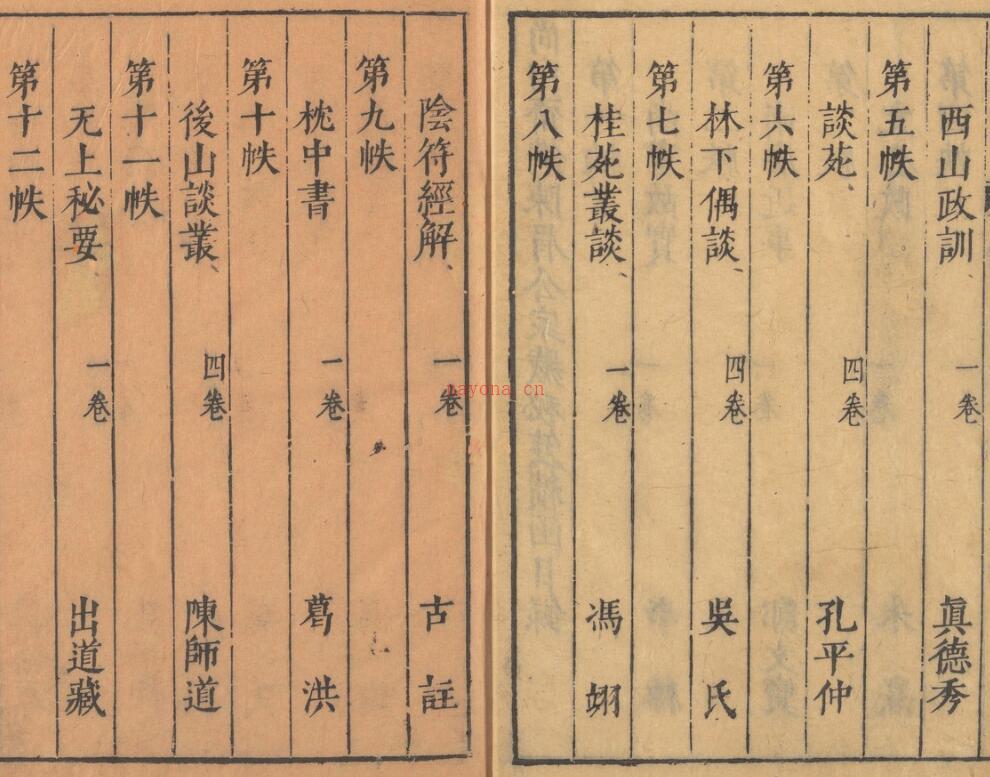 西山政訓、 一卷 眞德秀
第五帙
談苑、 四卷 孔平仲
第六帙
林下偶談、 四卷 吳氏
第七帙
桂苑叢談、 一卷 馮翊
第八帙
陰符經解、 一卷 古註
第九帙
枕中書 一卷 葛洪
第十帙
後山談叢、 四卷 陳師道
第十一帙
无上秘要、 一卷 出道藏
第十二帙
nayona.cn